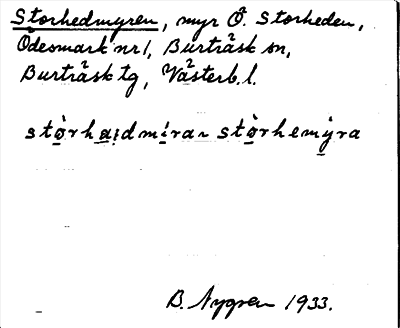 Storhedmyren, myr Ö. Storheden,
Ödesmark nr 1, Burträsk sn,
Burträsk tg, Västerb. l.
stòrhaidmirar stòrhemýra
B. Nygren 1933.